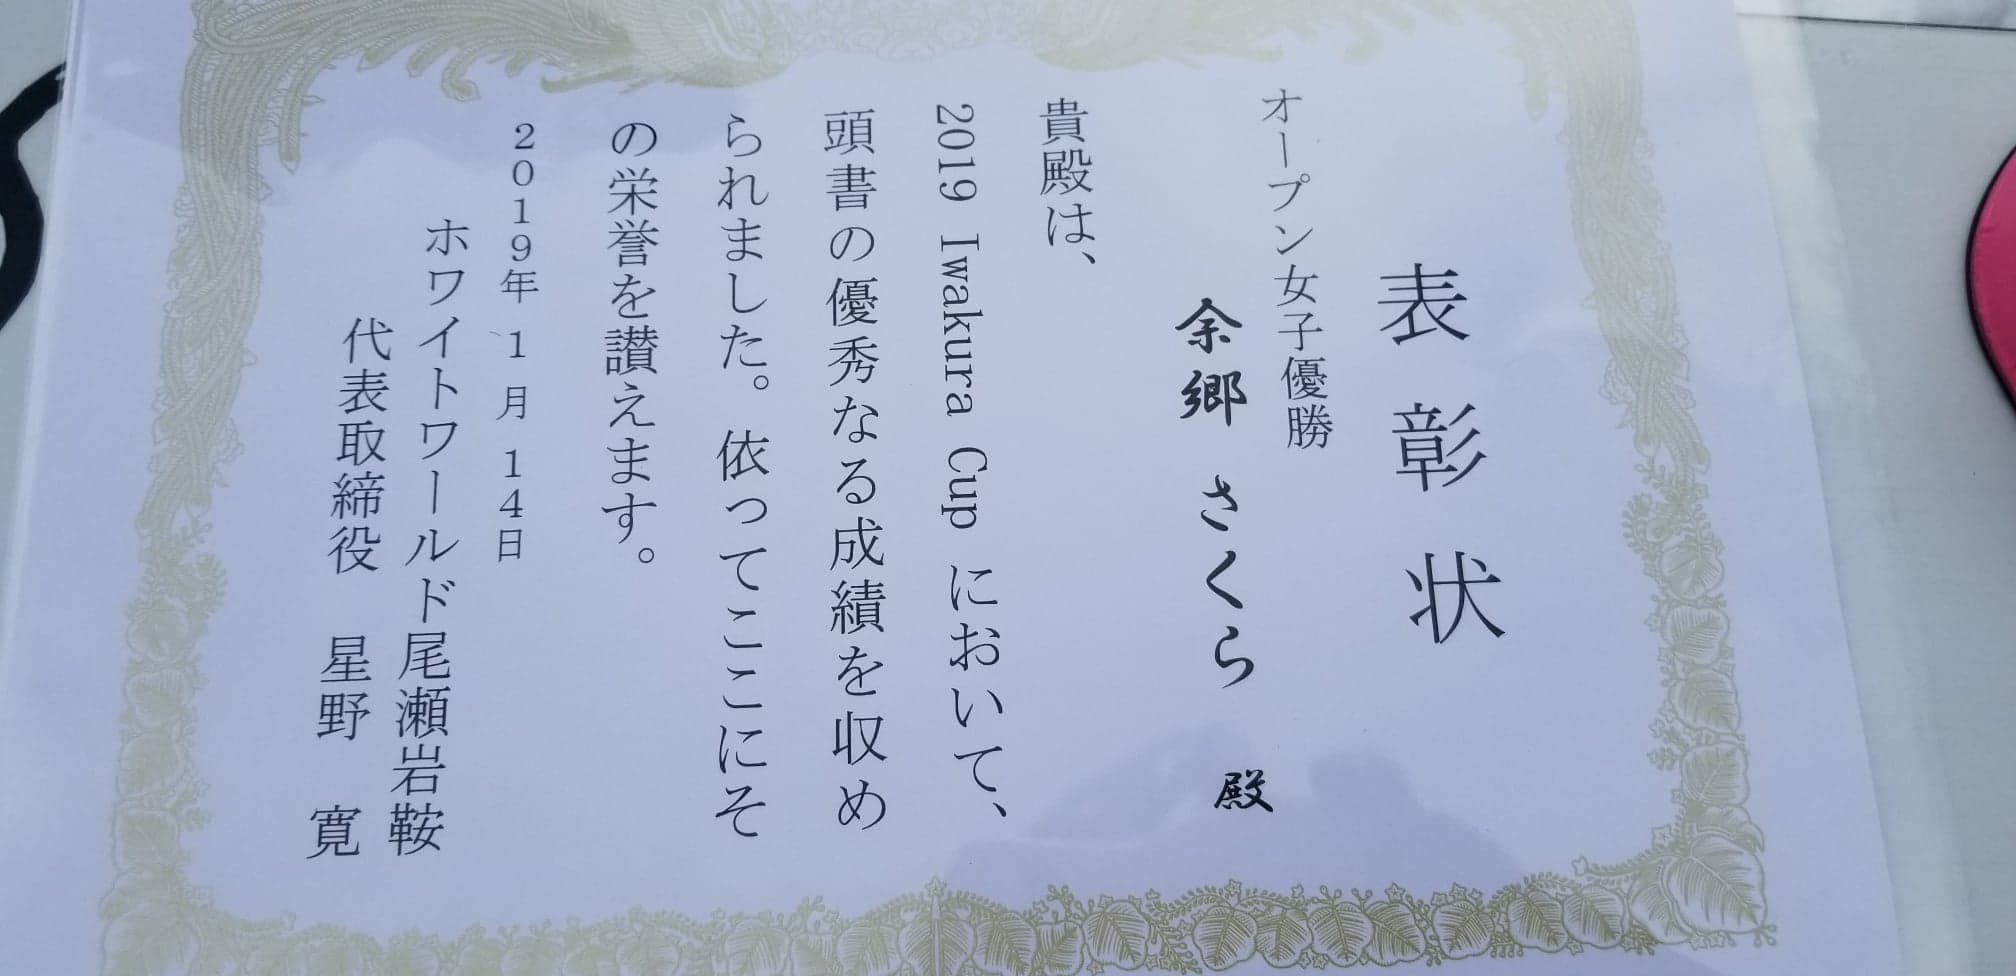 表彰状
オープン女子優勝
余郷 さくら 殿
貴殿は、
2019 Iwakura Cup において、
頭書の優秀なる成績を収め
られました。依ってここにそ
の栄誉を讃えます。
２０１９年 １月 １４日
ホワイトワールド尾瀬岩鞍
代表取締役 星野 寛